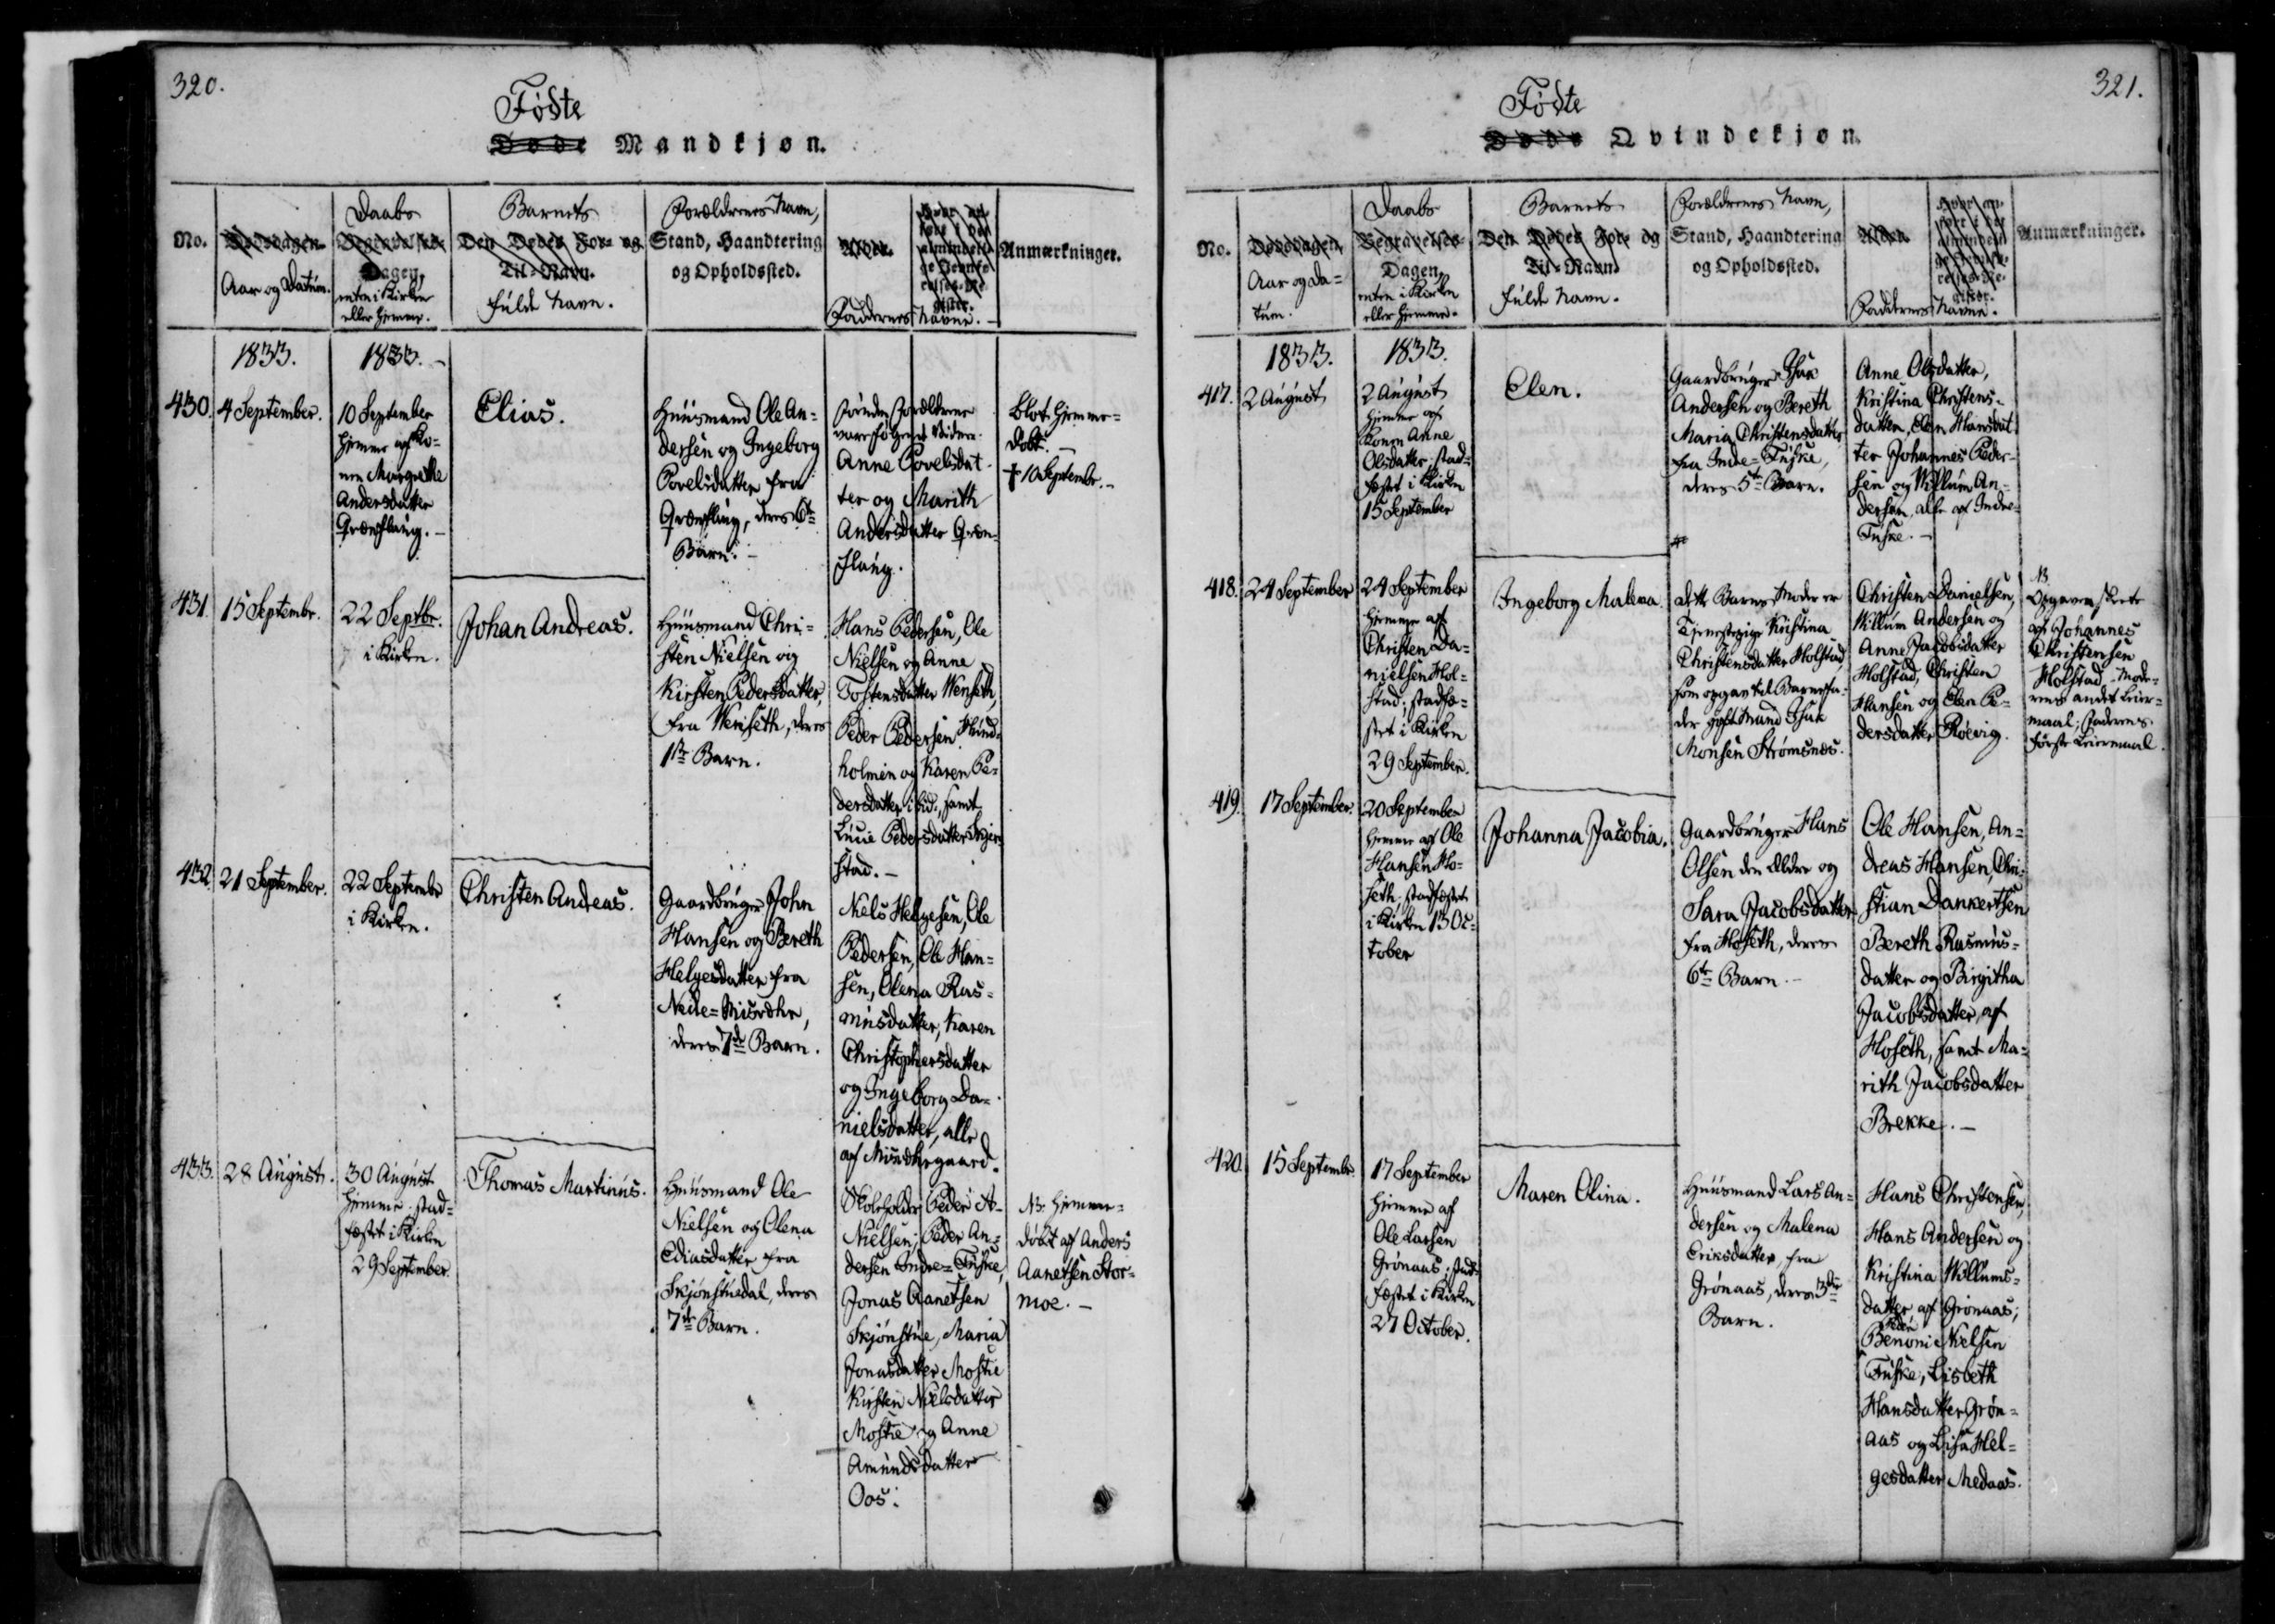 320.
Fødte
Døde Mandkjøn.
No.
Dødsdagen.
Aar og Datum.
Daabs
Begravelses-
Dagen,
enten i Kirken
eller hjemme.
Barnets
Den Dødes For- og
Til-Navn.
fulde Navn.
Forældrenes Navn,
Stand, Haandtering
og Opholdssted.
Alder.
Faddernes Navne.
Anmærkninger.
1833.
1833.
430.
4 September.
10 September
hjemme af Ko-
nen Margrethe
Andersdatter
Grønflaug.
Elias.
Huusmand Ole An-
dersen og Ingeborg
Povelsdatter fra
Grønflaug, deres 6te
Barn.
foruden Forældrene
vare følgende Vidner:
Anne Povelsdat-
ter og Marith
Andersdatter Grøn-
flaug.
blot hjemme-
døbt.
† 10 Septembr.
431.
15 Septembr.
22 Septbr.
i Kirken.
Johan Andreas.
Huusmand Chri-
sten Nielsen og
Kirsten Pedersdatter,
fra Wenseth, deres
1ste Barn.
Hans Pedersen, Ole
Nielsen og Anne
Tostensdatter Wenseth,
Peder Pedersen Hund-
holmen og Karen Pe-
dersdatter ibid., samt
Lucie Pedersdatter Skjer-
stad.
432
21 September.
22 Septembr
i Kirken.
Christen Andreas.
Gaardbruger John
Hansen og Bereth
Helgesdatter fra
Nedre-Misvær,
deres 7de Barn.
Niels Helgesen, Ole
Pedersen, Ole Han-
sen, Olena Ras-
musdatter, Karen
Christophersdatter
og Ingeborg Da-
nielsdatter, alle
af Misværgaard.
433.
28 August.
30 August
hjemme; stad-
fæstet i Kirken
29 September
Thomas Martinus.
Huusmand Ole
Nielsen og Olena
Eliasdatter fra
Skjønstuedal, deres
7de Barn.
Skoleholder Peder A-
Nielsen; Peder An-
dersen Indre-Tuske,
Jonas Aanetsen
Skjønstue, Maria
Jonasdatter Mostie
Kirsten Nielsdatter
Mostie og Anne
Amundsdatter
Oos.
NB. hjemme-
døbt af Anders
Aanetsen Stor-
moe.
321.
Fødte
Døde Qvindekjøn.
No.
Dødsdagen.
Aar og Da-
tum.
Daabs
Begravelses-
Dagen,
enten i Kirken
eller hjemme.
Barnets
Den Dødes For- og
Til-Navn.
fulde Navn.
Forældrenes Navn,
Stand, Haandtering
og Opholdssted.
Alder.
Faddernes Navne.
Anmærkninger.
1833.
1833.
417.
2 August
2 August
hjemme af
Konen Anne
Olsdatter; stad-
fæstet i Kirken
15 September
Elen.
Gaardbruger Isak
Andersen og Bereth
Maria Christensdatter
fra Indre-Tuske,
deres 5te Barn.
Anne Olsdatter,
Kristina Christens-
datter, Elen Hansdat-
ter Johannes Peder-
sen og Willum An-
dersen, alle af Indre-
Tuske.
418.
24 September
24 September
hjemme af
Christen Da-
nielsen Hol-
stad; stadfæ-
stet i Kirken
29 September.
Ingeborg Malena.
dette Barns Moder er
Tjenestepige Kristina
Christensdatter Holstad,
som opgav til Barnefa-
der gift Mand Isak
Monsen Strømsnes.
Christen Danielsen,
Willum Andersen og
Anne Jacobsdatter
Holstad, Christen
Hansen og Elen Pe-
dersdatter Røevig.
NB
Opgaven skeete
af Johannes
Christensen
Holstad. Mode-
rens andet Leier-
maal; Faderens
første Leiermaal.
419.
17 September.
20 September
hjemme af Ole
Hansen Ho-
seth; stadfæstet
i Kirken 13 Oc-
tober
Johanna Jacobia.
Gaardbruger Hans
Olsen den Ældre og
Sara Jacobsdatter
fra Hoseth, deres
6te Barn.
Ole Hansen, An-
dreas Hansen, Chri-
stian Dankertsen
Bereth Rasmus-
datter og Birgitha
Jacobsdatter, af
Hoseth, samt Ma-
rith Jacobsdatter
Brekke.
420.
15 Septembr.
17 September
hjemme af
Ole Larsen
Grønaas; stad-
fæstet i Kirken
27 October.
Maren Olina.
Huusmand Lars An-
dersen og Malena
Eriksdatter, fra
Grønaas, deres 3die
Barn.
Hans Christensen,
Hans Andersen og
Kristina Willums-
datter af Grønaas;
Peder
Benoni Nielsen
Tuske, Lisbeth
Hansdatter Grøn-
aas og Lisa Hel-
gesdatter Medaas.